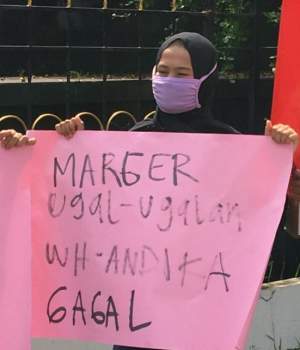 MARGER
Ugal-Ugalan
WH-ANDIKA
GAGAL